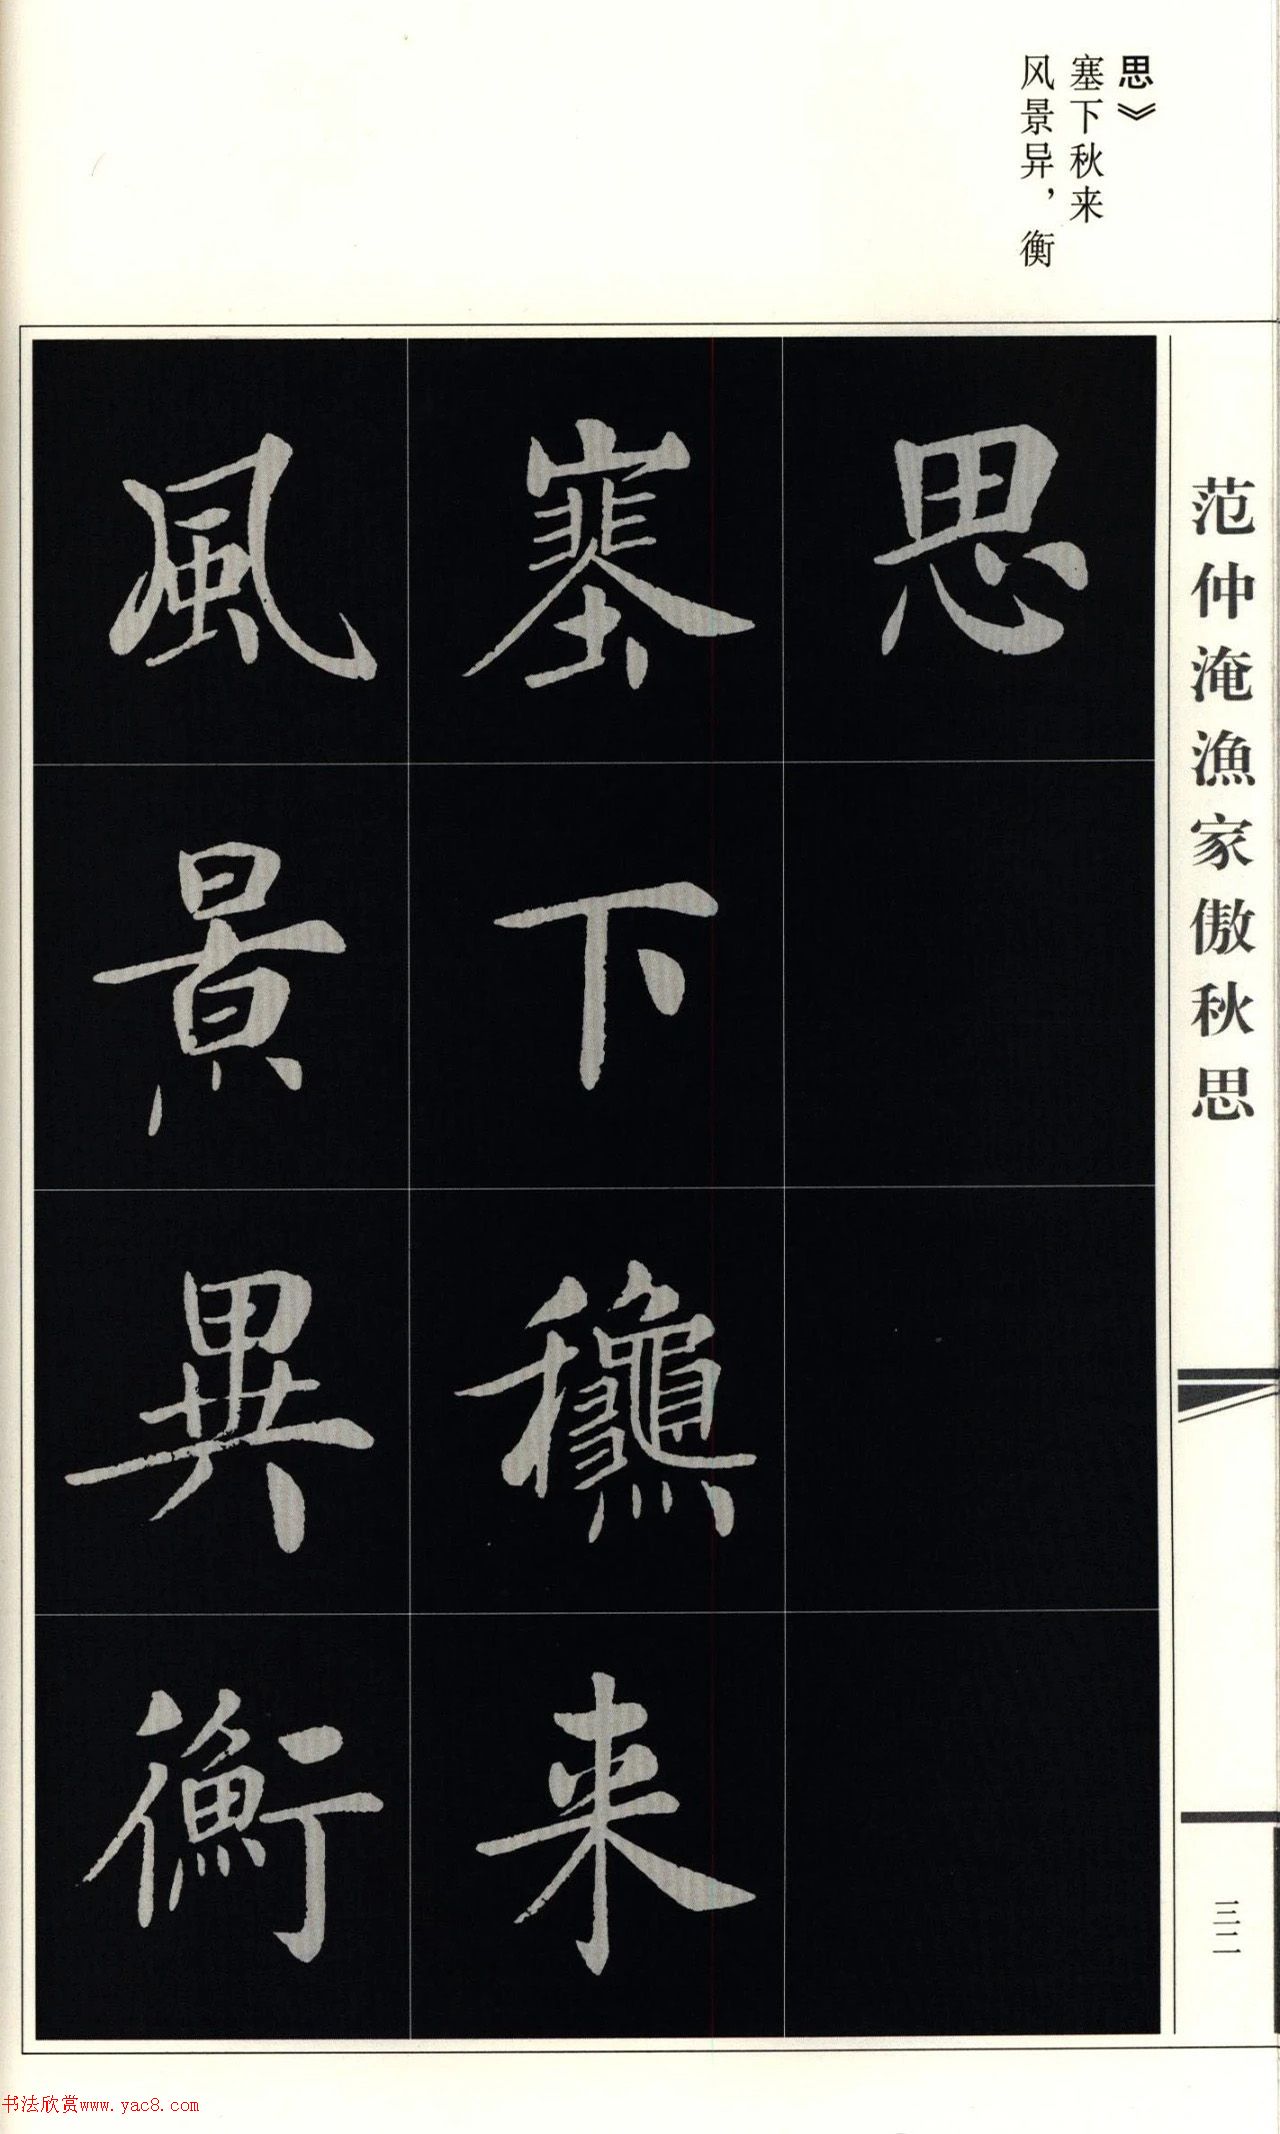 思》
塞下秋来
风景异，衡
范仲淹渔家傲秋思
思
塞下龝来
風景異衡
三二
书法欣赏www.yac8.com